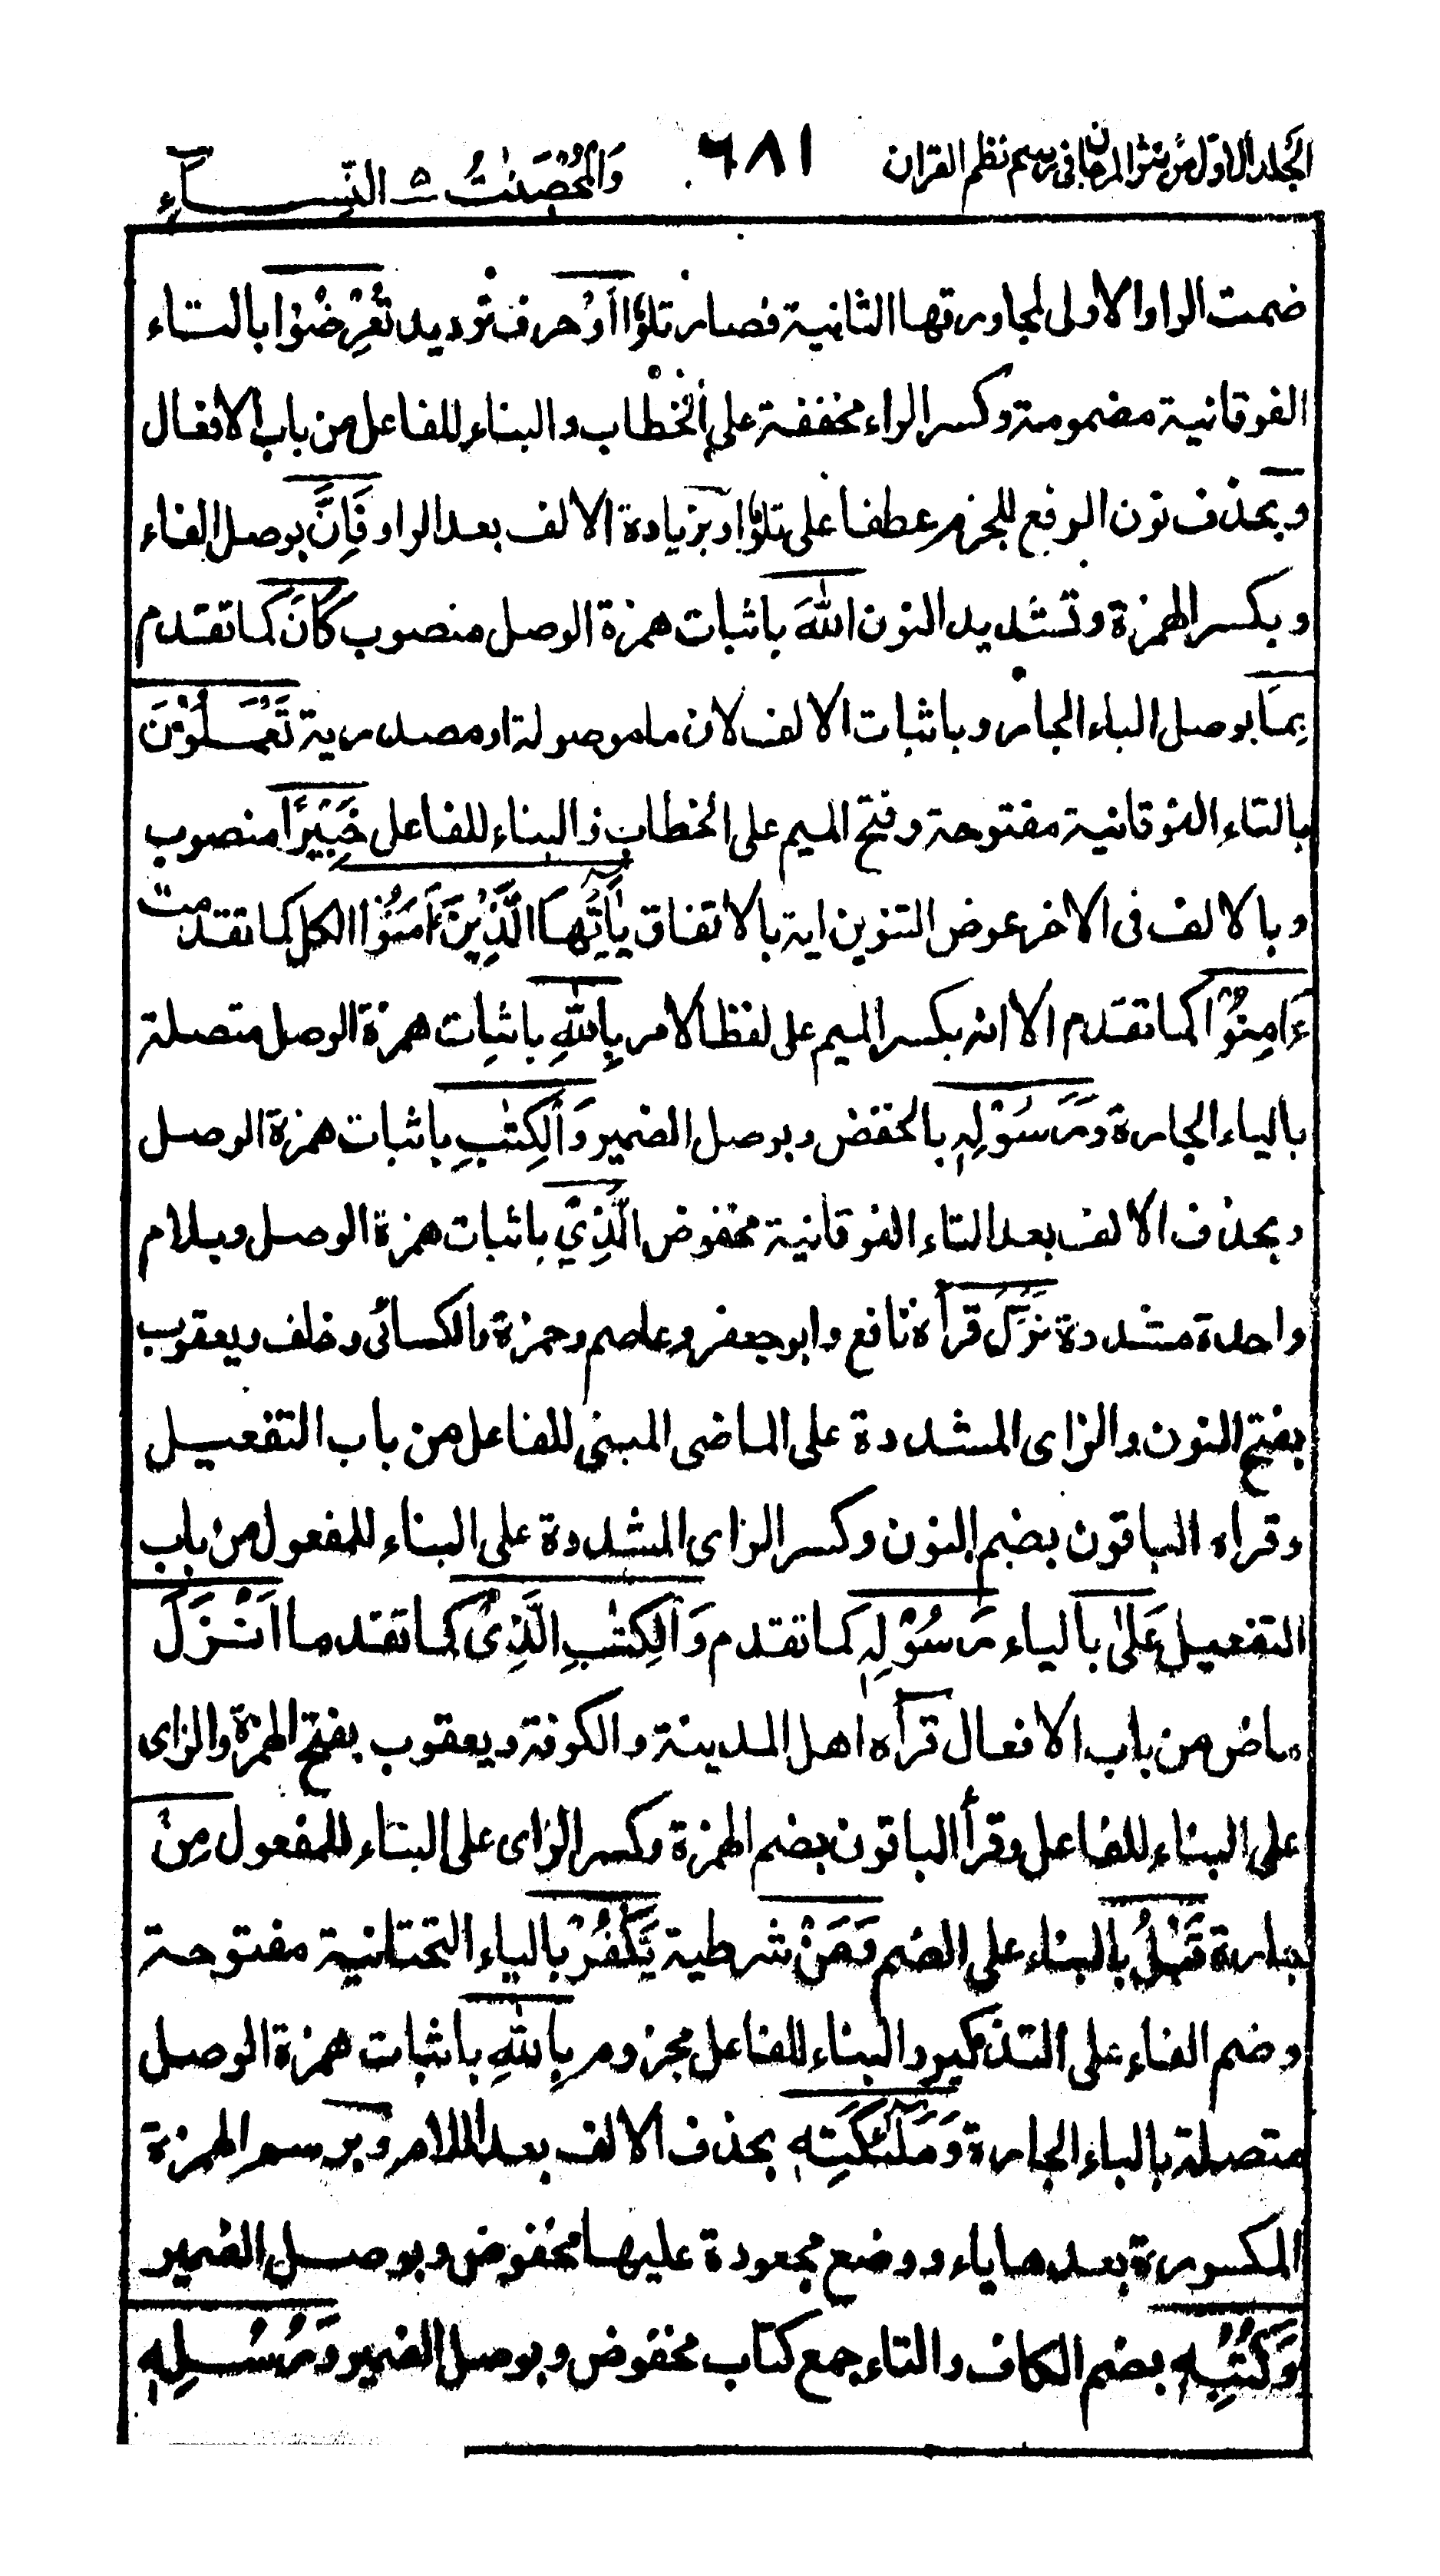 الجلد الاول من نثر المرجان في رسم نظم القران ٦٨١ وَالْمُحْصَنٰتُ ٥ النِّسَــــآءِ
ضمت الواو الاولى لمجاورتها الثانية فصار تلوٗا اَوْ حرف ترديد تُعْرِضُوْا بالتاء
الفوقانية مضمومة وكسر الراء مخففة على الخطاب والبناء للفاعل من باب الافعال
وبحذف نون الرفع للجزم عطفا على تلوٗا وبزيادة الالف بعد الواو فَاِنَّ بوصل الفاء
وبكسر الهمزة وتشديد النون اللّٰهَ باثبات همزة الوصل منصوب كَانَ كما تقدم
بِمَا بوصل الباء الجار وباثبات الالف لان ما موصولة او مصدرية تَعْمَلُوْنَ
بالتاء الفوقانية مفتوحة وفتح الميم على الخطاب والبناء للفاعل خَبِيْرًا منصوب
وبالالف فى الاخر عوض التنوين اية بالاتفاق يٰٓاَيُّهَا الَّذِيْنَ ءَامَنُوْا الكل كما تقدمت
ءَامِنُوْا كما تقدم الا انه بكسر الميم على لفظ الامر بِاللّٰهِ باثبات همزة الوصل متصلة
بالباء الجارة وَرَسُوْلِهٖ بالخفض وبوصل الضمير وَالْكِتٰبِ باثبات همزة الوصل
وبحذف الالف بعد التاء الفوقانية مخفوض الَّذِيْ باثبات همزة الوصل وبلام
واحدة مشددة نَزَّلَ قرأه نافع وابو جعفر وعاصم وحمزة والكسائى وخلف ويعقوب
بفتح النون والزاى المشددة على الماضى المبنى للفاعل من باب التفعيل
وقراه الباقون بضم النون وكسر الزاى المشددة على البناء للمفعول من باب
التفعيل عَلٰى بالياء رَسُوْلِهٖ كما تقدم وَالْكِتٰبِ الَّذِىْ كما تقدما اَنْــزَلَ
ماض من باب الافعال قرأه اهل المدينة والكوفة ويعقوب بفتح الهمزة والزاى
على البناء للفاعل وقرأ الباقون بضم الهمزة وكسر الزاى على البناء للمفعول مِنْ
جارة قَبْلُ بالبناء على الضم فَمَنْ شرطية يَكْفُرْ بالياء التحتانية مفتوحة
وضم الفاء على التذكير والبناء للفاعل مجزوم بِاللّٰهِ باثبات همزة الوصل
متصلة بالباء الجارة وَمَلٰٓئِكَتِهٖ بحذف الالف بعد اللام وبرسم الهمزة
المكسورة بعدها ياء ووضع مجعودة عليها مخفوض وبوصل الضمير
وَكُتُبِهٖ بضم الكاف والتاء جمع كتاب مخفوض وبوصل الضمير وَرُسُــلِهٖ